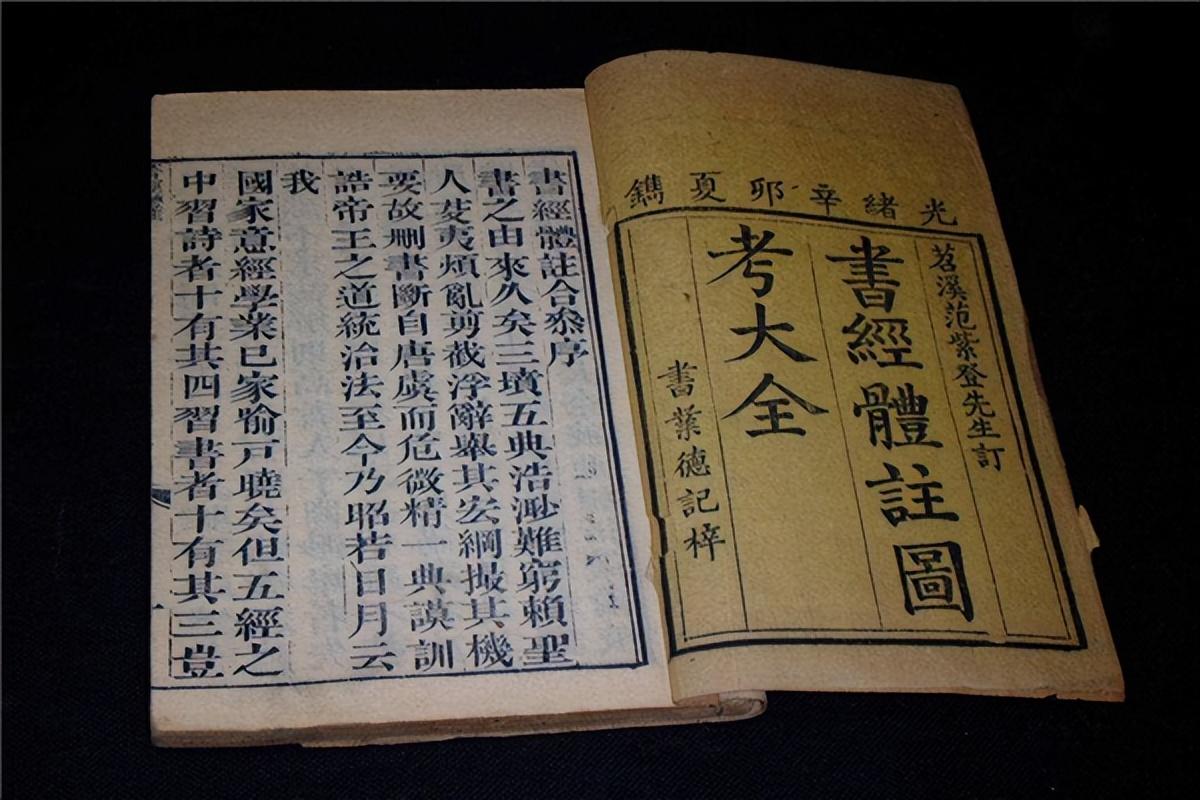 光緒辛夘夏鐫
苕溪范紫登先生訂
書經體註圖
考大全
書業德記梓
書經體註合叅序
書之由來久矣三墳五典浩渺難窮賴聖
人芟夷煩亂剪截浮辭舉其宏綱撮其機
要故刪書斷自唐虞而危微精一典謨訓
誥帝王之道統治法至今乃昭若日月云
我
國家意經學業已家喻戸曉矣但五經之
中習詩者十有其四習書者十有其三豈